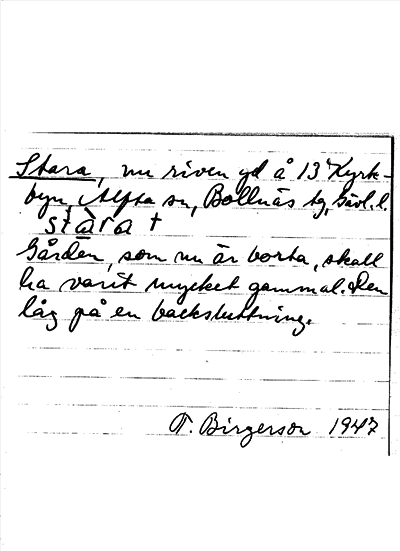 Stara, nu riven gd å 13 Kyrk-
byn, Alfta sn, Bollnäs tg, Gävl. l.
stàra †
Gården, som nu är borta, skall
ha varit mycket gammal. Den
låg på en backsluttning.
T. Birgerson 1947